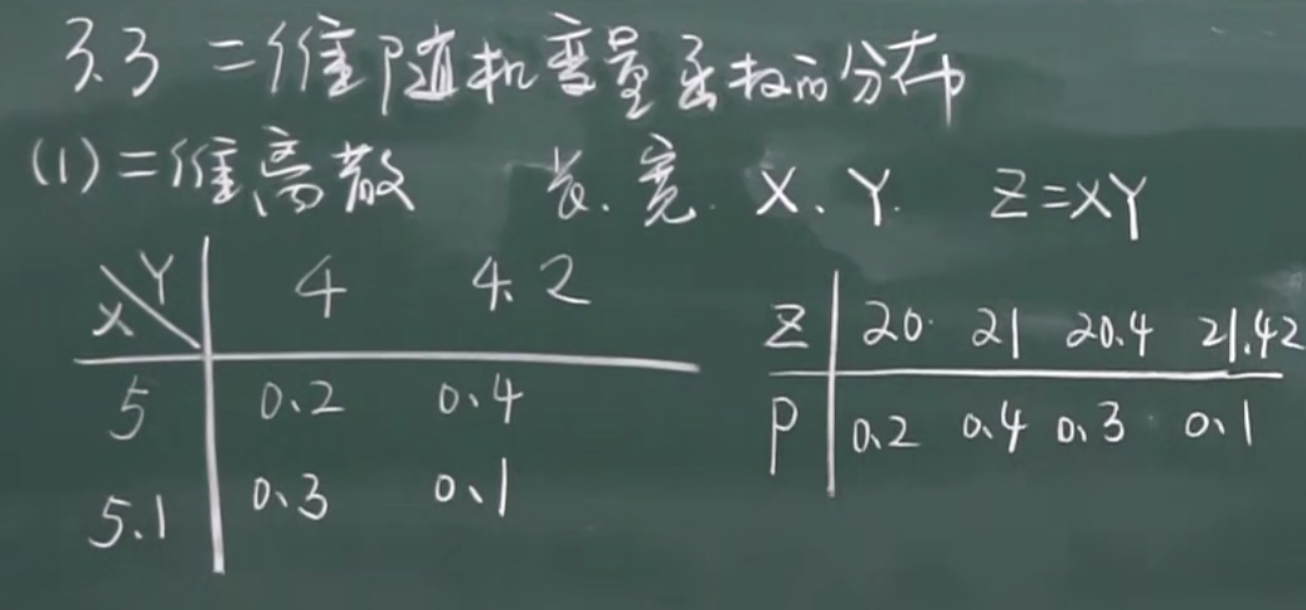 3.3 二维随机变量函数的分布
(1)二维离散 长、宽. X、Y. Z=XY
X Y 4 4.2
5 0.2 0.4
5.1 0.3 0.1
Z 20 21 20.4 21.42
P 0.2 0.4 0.3 0.1